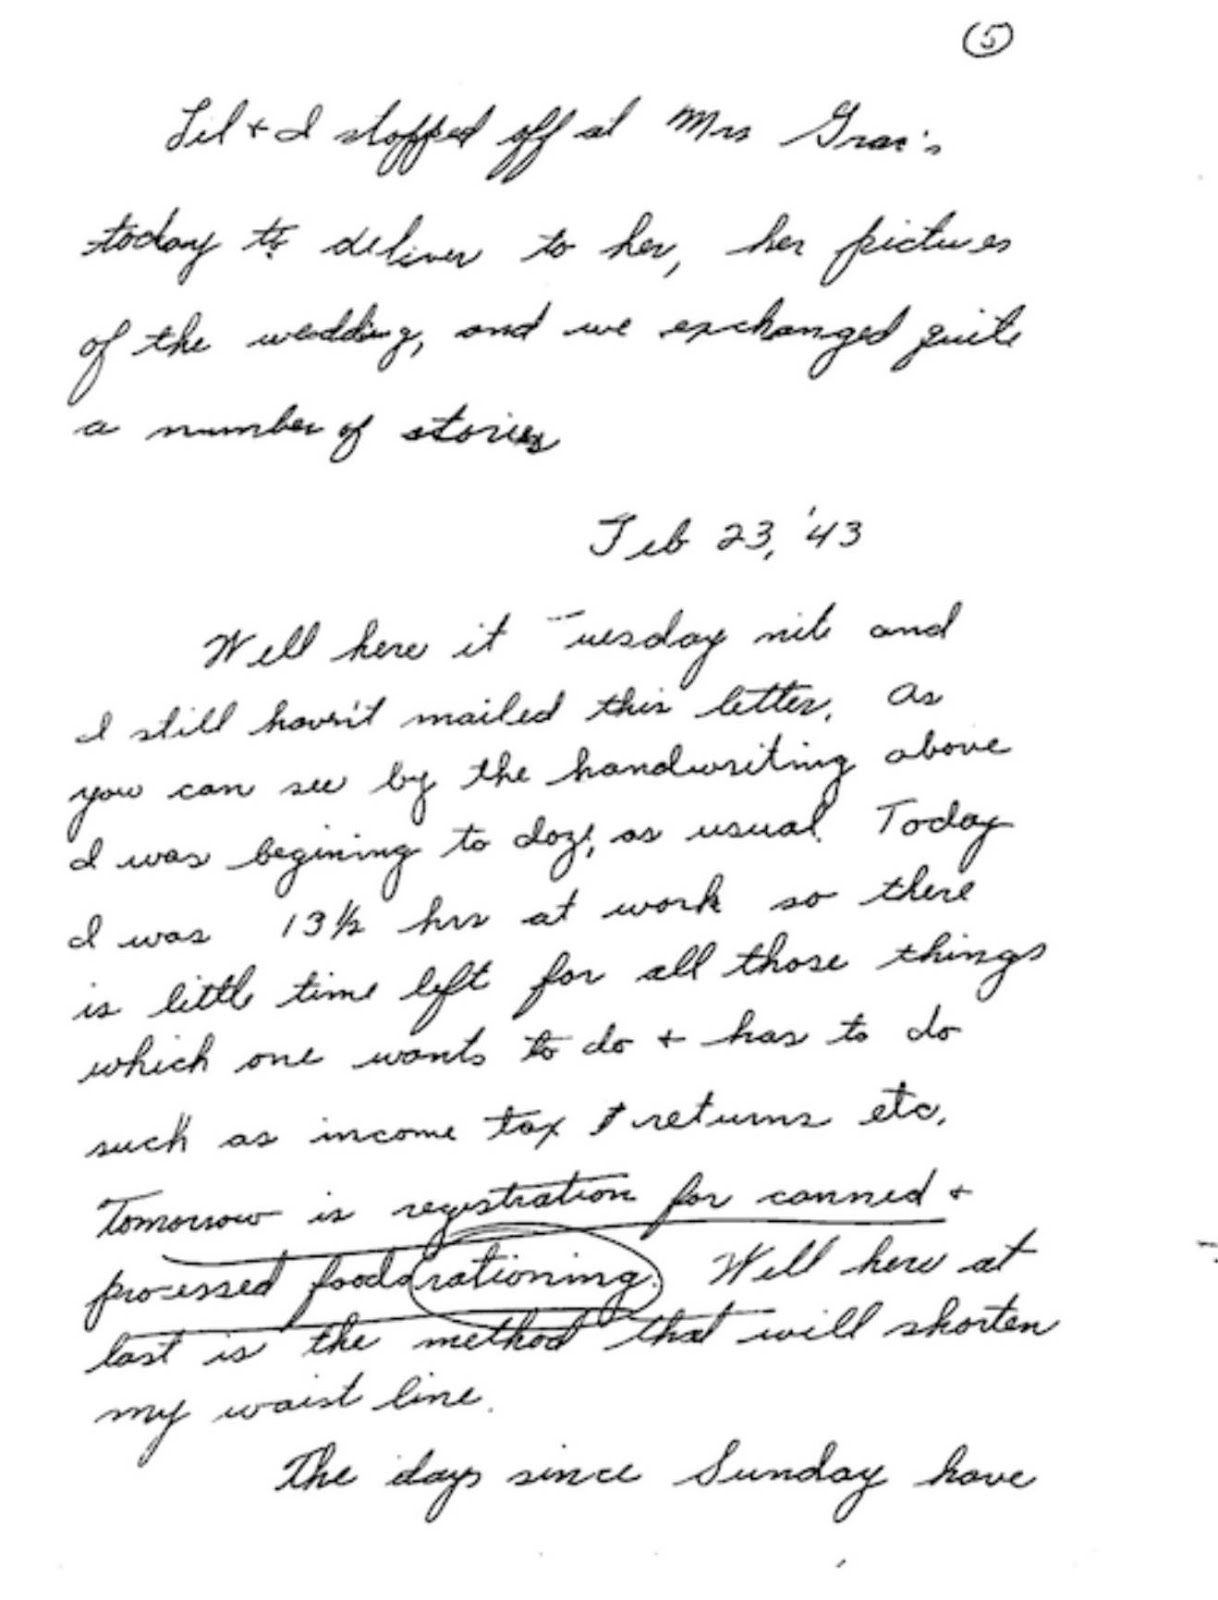 5
Lil + I stopped off at Mrs
today to deliver to her, her pictures
of the wedding, and we exchanged quite
a number of stories
Feb 23, '43
Well here it Tuesday nite and
I still havn't mailed this letter. As
you can see by the handwriting above
I was begining to doze, as usual. Today
I was 13½ hrs at work so there
is little time left for all those things
which one wants to do + has to do
such as income tax returns etc.
Tomorrow is registration for canned +
processed foods rationing. Well here at
last is the method that will shorten
my waist line.
The days since Sunday have